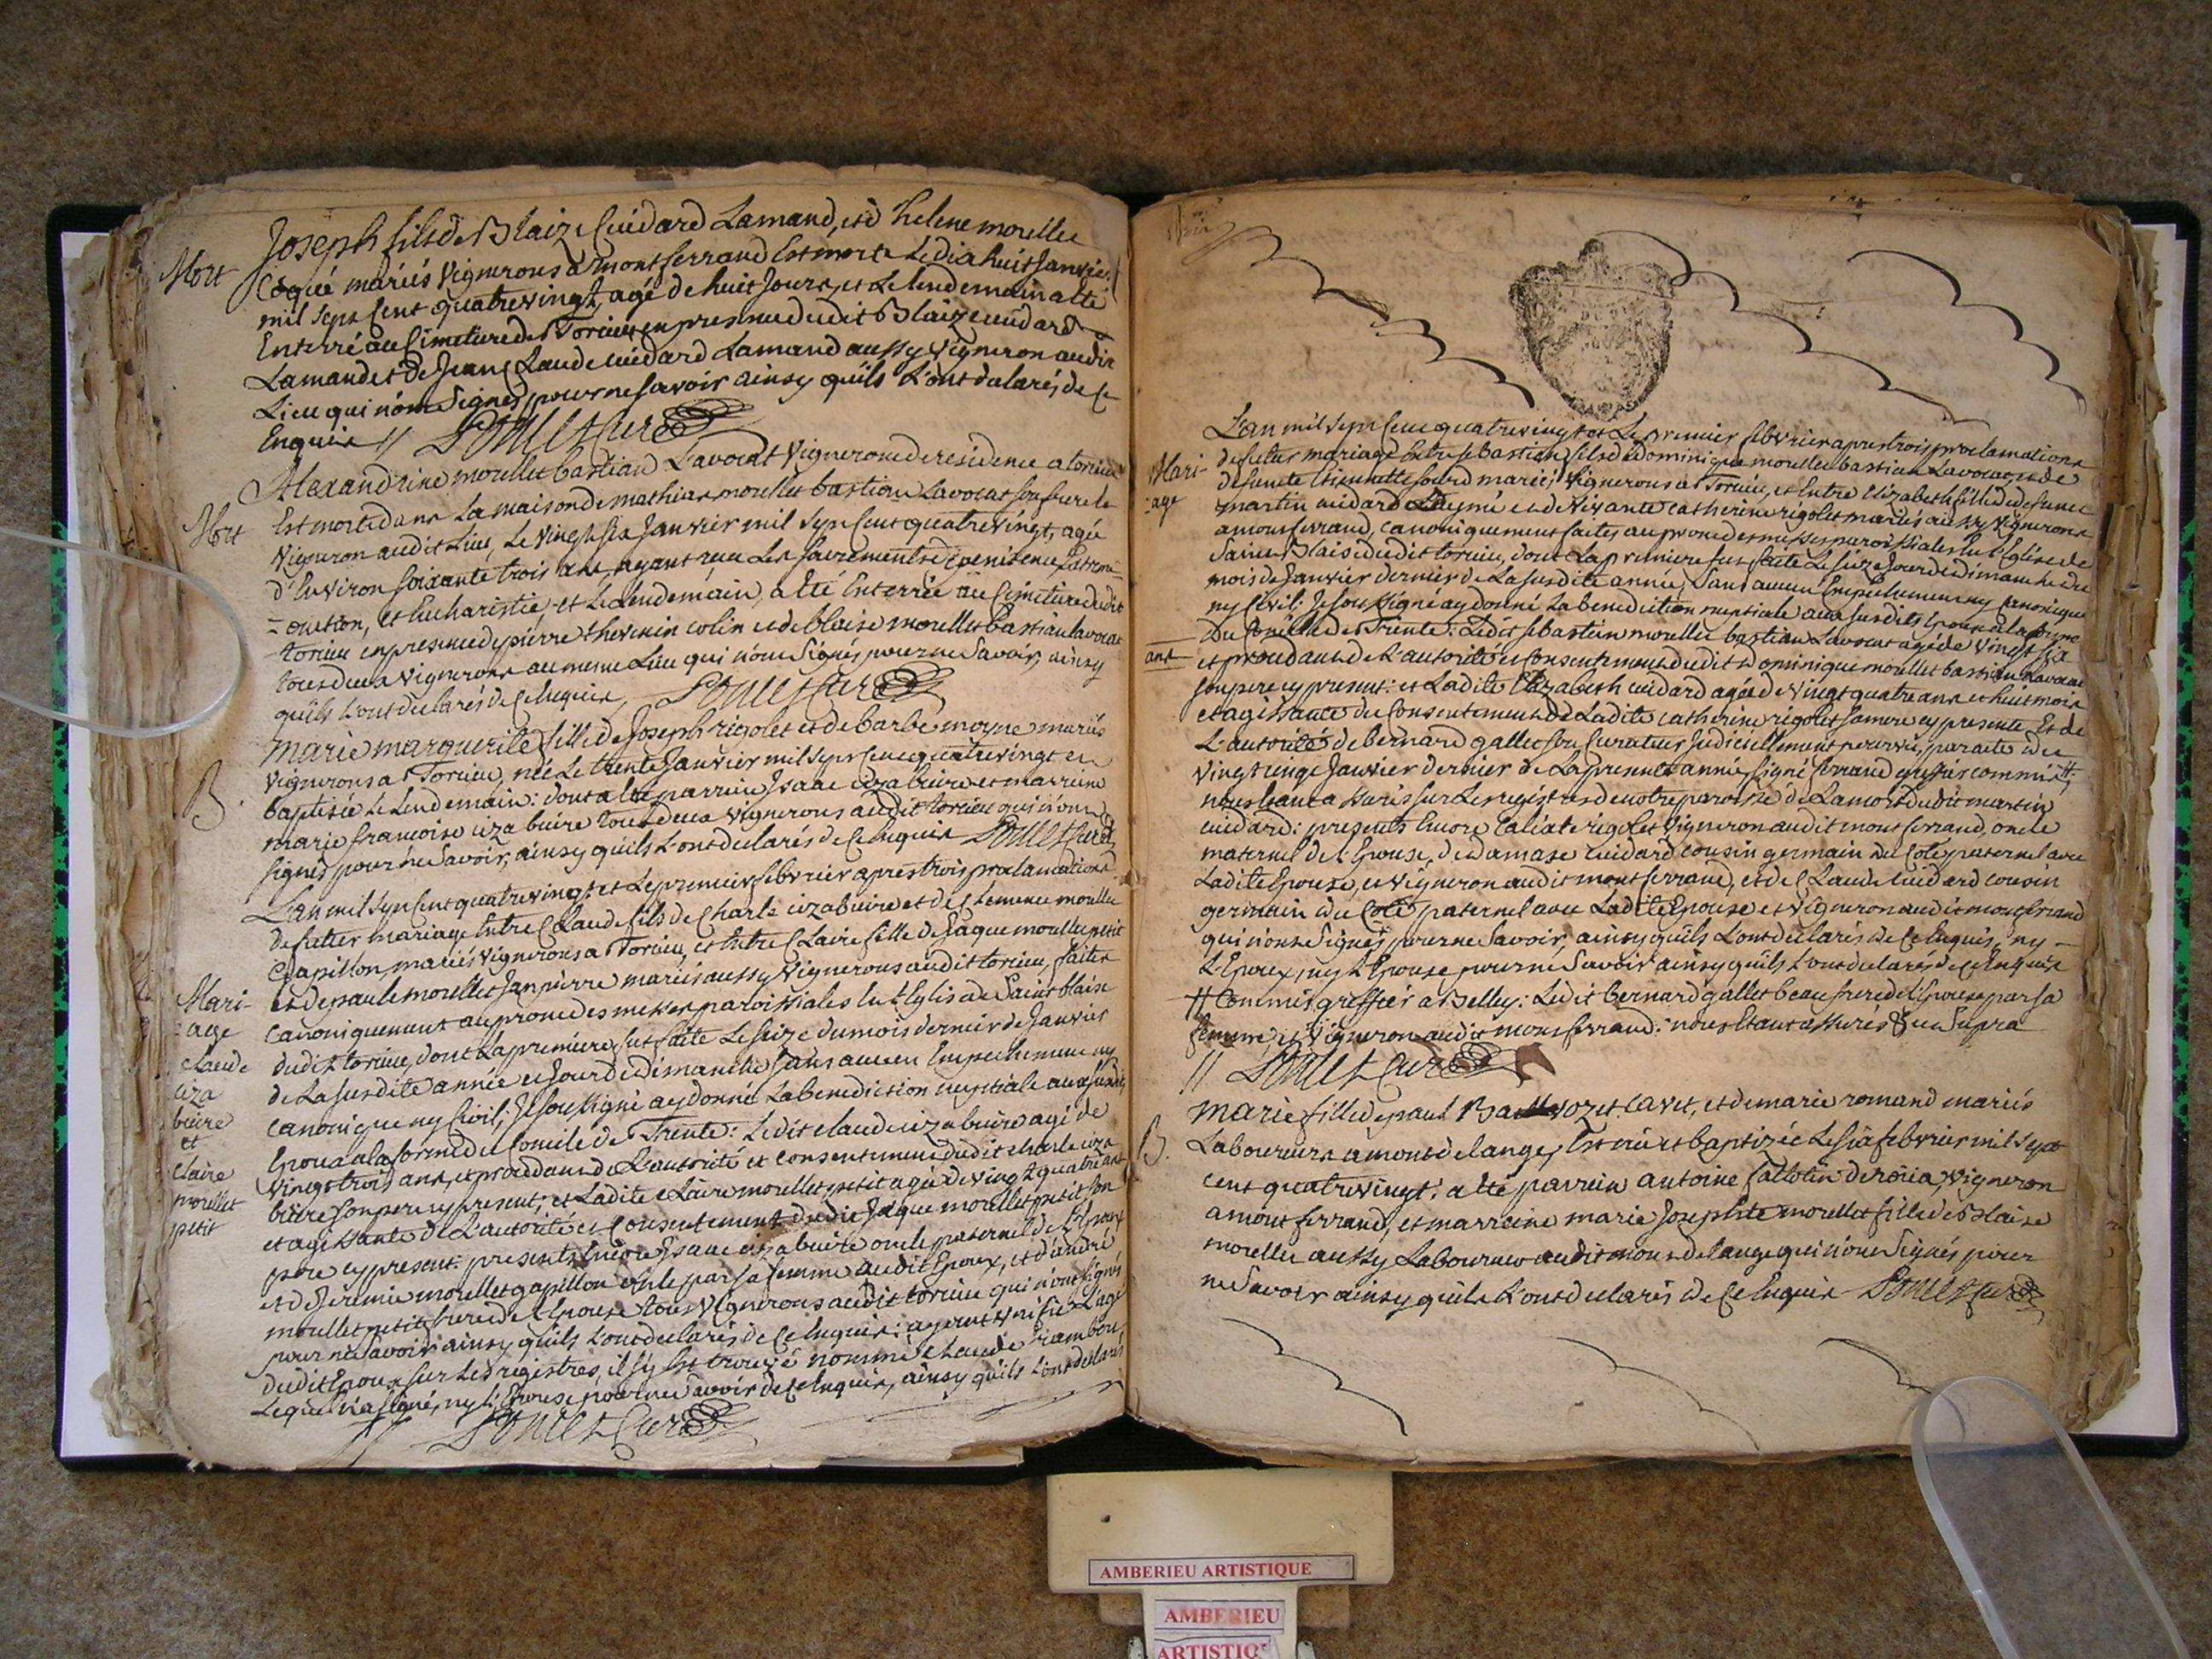 Joseph fils de Blaize Cuidard Lamand, et d'helene morellet
Mort
Coqué mariés vignerons a montferrand Est mort Le dix huit Janvier
mil sept Cent quatrevingt, agé de huit Jours, et Le lendemain a été
Enterré au Cimetiere de Torcieu en presence dudit Blaize cuidard
Lamand et de Jean Claude cuidard Lamand aussy vigneron audit
Lieu qui n'ont Signés pour ne Savoir ainsy qu'ils L'ont declarés de Ce
Enquis // Ponlet Curé
Alexandrine morellet bastian L'avocat vigneronne de residence a torcieu
Mort
Est morte dans La maison de mathias morellet bastian Lavocat son frere
vigneron audit Lieu, Le vingt six Janvier mil sept Cent quatrevingt, agée
d'Environ soixante trois ans ayant reçu Les sacrements de penitence, Extreme
=onction, et Eucharistie, et Le Lendemain, a été Enterrée au Cimetiere dudit
torcieu en presence de pierre thevenin colin et de blaise morellet bastian lavocat
tous deux vignerons au meme Lieu qui n'ont Signés pour ne Savoir, ainsy
qu'ils L'ont declarés de Ce Enquis, Ponlet Curé
marie marguerite fille de Joseph rigolet et de barbe moyne mariés
B.
vignerons a Torcieu, née Le trente Janvier mil sept Cent quatrevingt et
baptisée Le Lendemain: dont a été parrein Isaac ciza buire et marreine
marie francoise ciza buire tous deux vignerons audit torcieu qui n'ont
signés pour ne Savoir, ainsy qu'ils L'ont declarés de Ce Enquis Ponlet Curé
L'an mil sept Cent quatrevingt et Le premier febvrier apres trois proclamations
de futur mariage Entre Claude fils de Charle ciza buire et de Clemence morellet
Gapillon mariés vignerons a Torcieu, et Entre Claire fille de Jaque morellet petit
Mari-
=age
Claude
ciza
buire
et
Claire
morellet
petit
et de paule morellet Janpierre mariés aussy vignerons audit torcieu, faites
canoniquement au prone des messes paroissiales En L'Eglise de Saint blaise
dudit torcieu, dont La premiere fut faite Le seize du mois dernier de Janvier
de La susdite année et Jour de dimanche sans aucun Empechement ny
canonique ny Civil; Je soussigné ay donné La benediction nuptiale aux susdits
Epoux a La forme du Concile de Trente: Ledit claude ciza buire agé de
vingt trois ans, et procedant de L'autorité et consentement dudit charle ciza
buire son pere cy present; et Ladite Claire morellet petit agée de vingt quatre ans
et agissante de L'autorité et Consentement dudit Jaque morellet petit son
pere cy present: presents Encore Esaac ciza buire oncle paternel de L'Epoux
et de Jeremie morellet gapillon oncle par sa femme audit Epoux, et d'andré
morellet petit frere de L'Epouse tous vignerons audit torcieu qui n'ont signés
pour ne Savoir ainsy qu'ils L'ont declarés de Ce Enquis: ayant verifié L'age
dudit Epoux sur Les registres, il s'y Est trouvé nommé claude rambou
Lequel n'a signé, ny L'Epouse pour ne Savoir de Ce Enquis, ainsy qu'ils L'ont declarés
// Ponlet Curé
L'an mil sept Cent quatrevingt et Le premier febvrier apres trois proclamations
Mari-
=age
de futur mariage Entre sebastien fils de dominique morellet bastian Lavocat, et de
defunte Etiennette sourd mariés vignerons a Torcieu, et Entre Elizabeth fille de defunt
martin cuidard Laymé et de vivante catherine rigolet mariés aussy vignerons
a montferrand, canoniquement faites au prone des messes paroissiales En L'Eglise de
Saint Blaise dudit torcieu, dont La premiere fut faite Le seize Jour de dimanche du
mois de Janvier dernier de La susdite année, sans aucun Empechement ny Canonique
ny Civil: Je soussigné ay donné La benediction nuptiale aux susdits Epoux a La forme
du Concile de Trente: Ledit sebastien morellet bastian Lavocat agé de vingt six
ans
et procedant de L'autorité et Consentement dudit dominique morellet bastian Lavocat
son pere cy present: et Ladite Elizabeth cuidard agée de vingt quatre ans et huit mois
et agissante du Consentement de Ladite catherine rigolet sa mere cy presente Et de
L'autorité de bernard gallet son Curateur Judiciellement pourvu, par acte du
vingt cinq Janvier dernier de La presente année, signé ferrand greffier commis #;
nous Etant assurés sur Les registres de notre paroisse de La mort dudit martin
cuidard: presents Encore Calixte rigolet vigneron audit montferrand, oncle
maternel de L'Epouse, de damase cuidard cousin germain du Coté paternel avec
Ladite Epouse, et vigneron audit montferrand, et de Claude Cuidard cousin
germain du Coté paternel avec Ladite Epouse et vigneron audit montferrand
qui n'ont Signés pour ne Savoir, ainsy qu'ils L'ont declarés de Ce Enquis, ny
L'Epoux, ny L'Epouse pour ne Savoir ainsy qu'ils L'ont declarés de Ce Enquis
# Commis greffier a Belley: Ledit bernard gallet beau frere de L'Epouse par sa
femme, et vigneron audit montferrand: nous Etant assurés ut Supra
// Ponlet Curé
marie fille de paul Ba vozet Cavet, et de marie romand mariés
B.
Laboureurs a montdelange, Est née et baptizée Le six febvrier mil sept
cent quatrevingt: a été parrein antoine fallotin deroüa, vigneron
a montferrand, et marreine marie Josephte morellet fille de Blaise
morellet aussy Laboureur audit montdelange qui n'ont Signés pour
ne Savoir ainsy qu'ils L'ont declarés de Ce Enquis Ponlet Curé
AMBERIEU ARTISTIQUE
AMBERIEU
ARTISTIQ